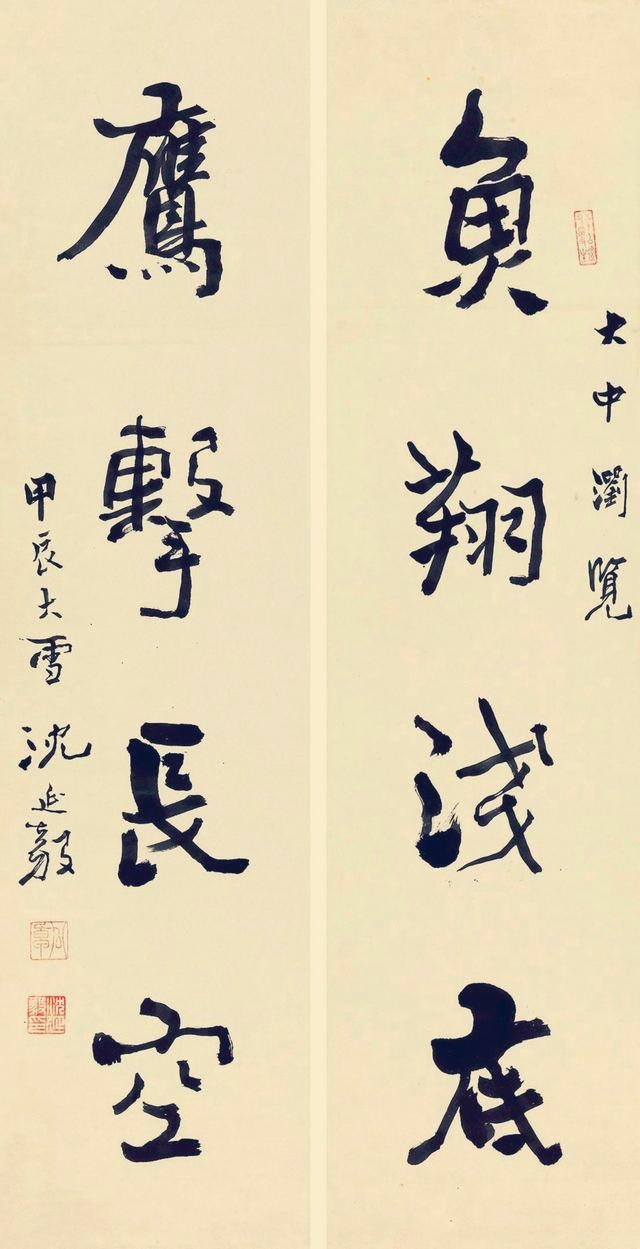 大中瀏覽
魚翔淺底
鷹擊長空
甲辰大雪
沈延毅
沈延毅印